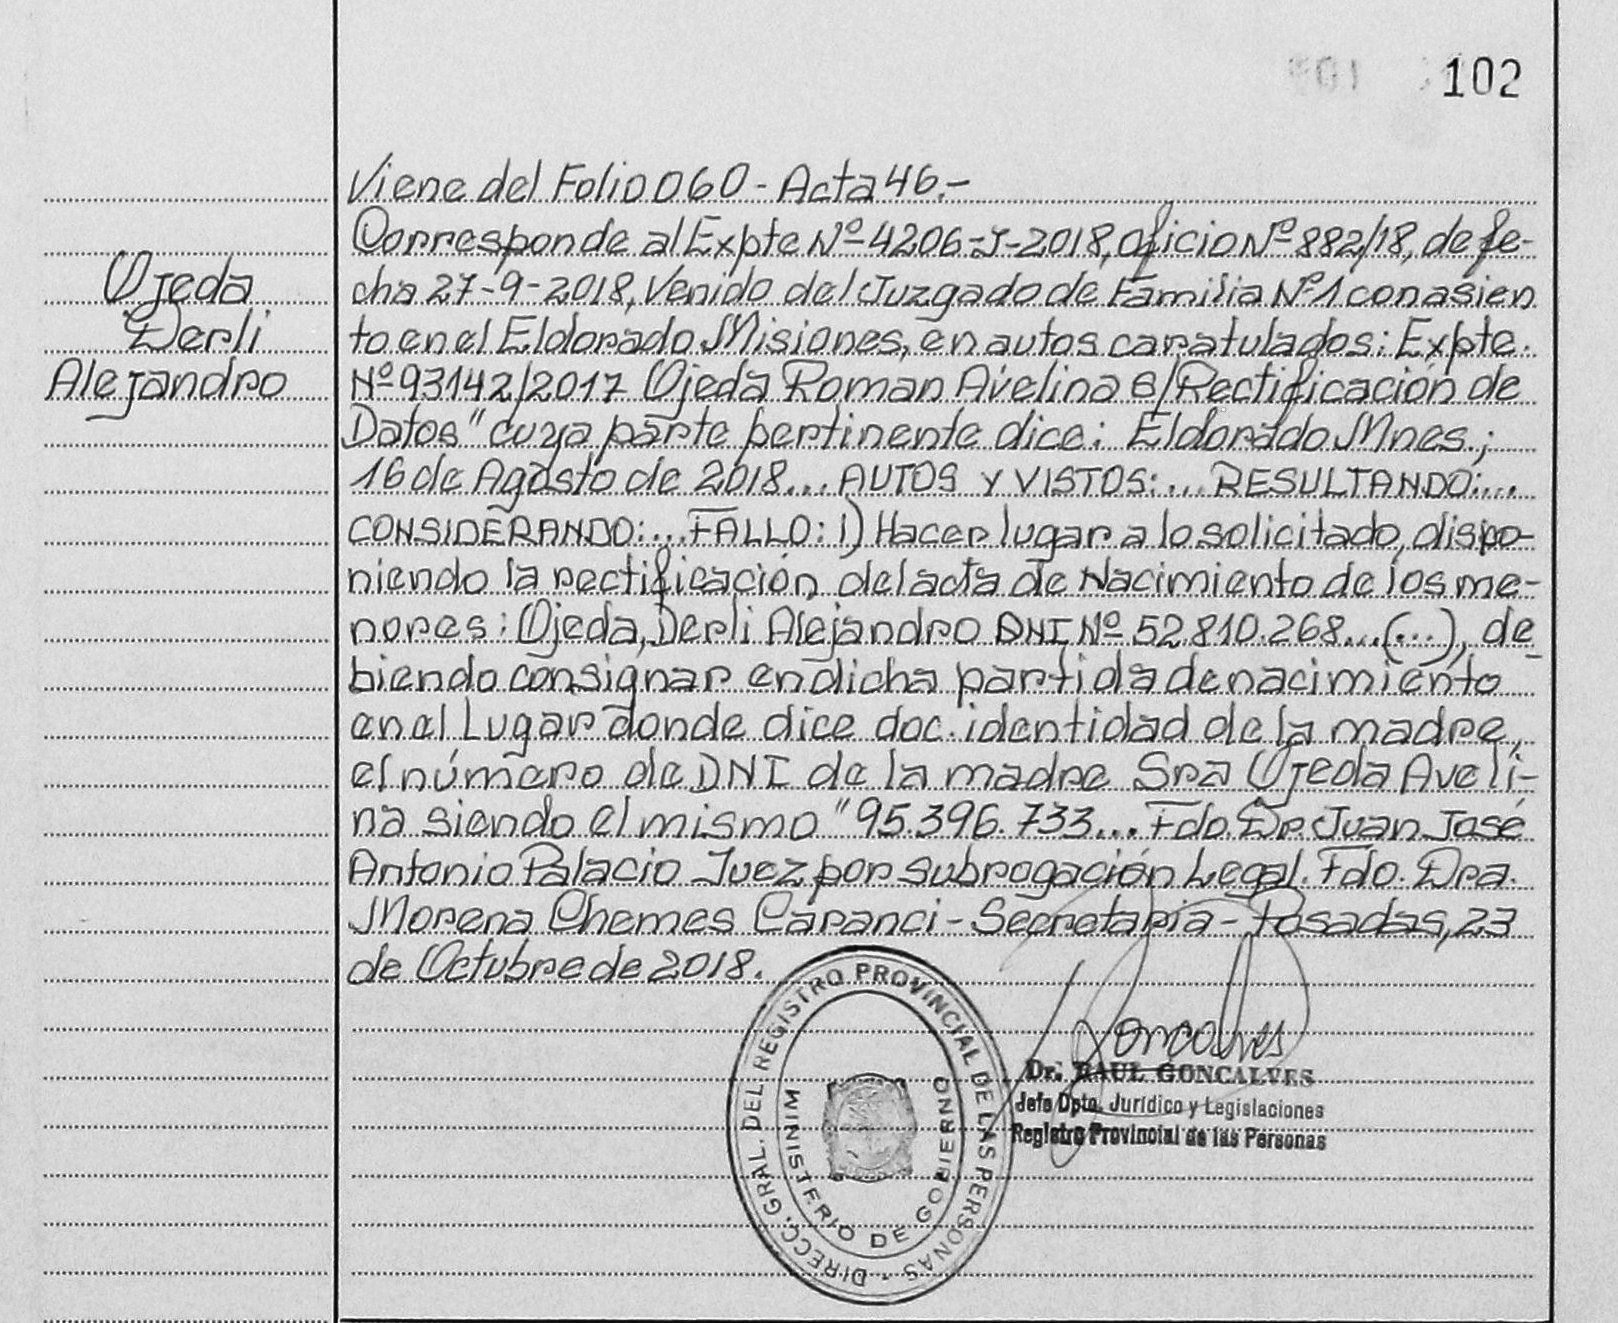 102
Viene del Folio 060 - Acta 46.-
Corresponde al Expte Nº 4206-J-2018, oficio Nº 882/18, de fe-
cha 27-9-2018, Venido del Juzgado de Familia Nº 1 con asien
to en el Eldorado Misiones, en autos caratulados: Expte.
Nº 93142/2017 Ojeda Roman Avelina s/Rectificación de
Datos" cuya parte pertinente dice: Eldorado Mnes.;
16 de Agosto de 2018... AUTOS Y VISTOS:... RESULTANDO:...
CONSIDERANDO:... FALLO: 1) Hacer lugar a lo solicitado, dispo-
niendo la rectificación del acta de Nacimiento de los me-
nores: Ojeda, Derli Alejandro DNI Nº 52.810.268...(...), de-
biendo consignar en dicha partida de nacimiento
en el Lugar donde dice doc. identidad de la madre,
el número de DNI de la madre Sra Ojeda Aveli-
na siendo el mismo "95.396.733... Fdo. Dr. Juan José
Antonio Palacio Juez por subrogación Legal. Fdo. Dra.
Morena Chemes Caranci - Secretaria - Posadas, 23
de Octubre de 2018.
Ojeda
Derli
Alejandro
DIRECC. GRAL. DEL REGISTRO PROVINCIAL DE LAS PERSONAS
MINISTERIO DE GOBIERNO
Goncalves
Dr. RAUL GONCALVES
Jefe Dpto. Jurídico y Legislaciones
Registro Provincial de las Personas